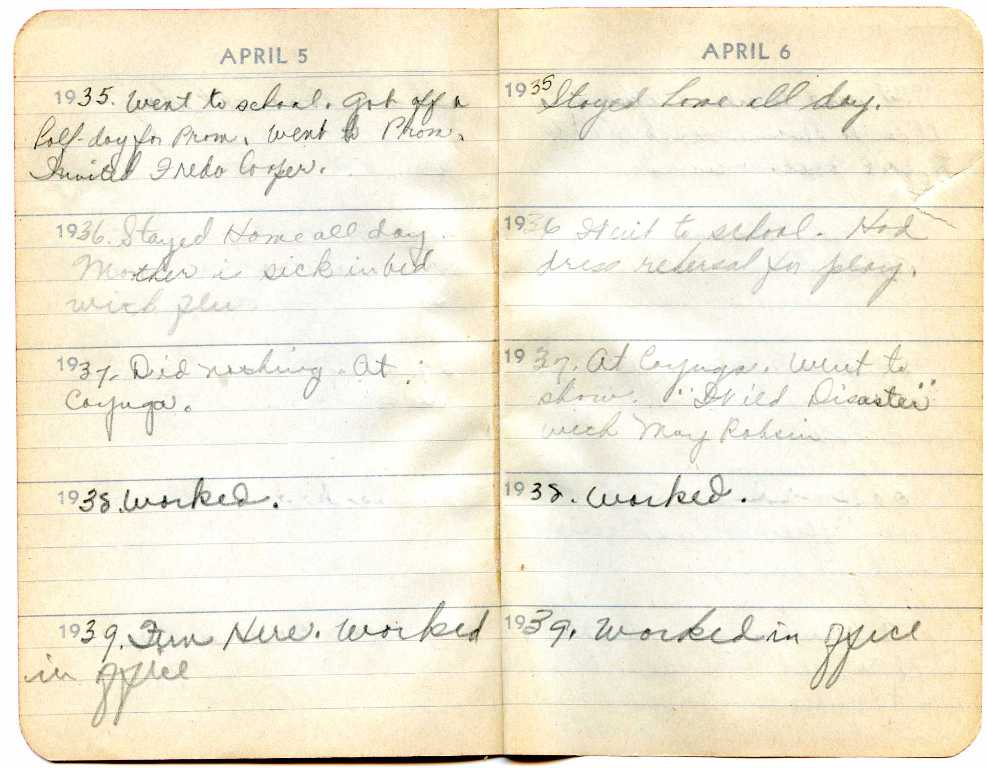 APRIL 5
1935. Went to school. Got off a
half-day for Prom. Went to Prom.
Invited Freda Cooper.
1936. Stayed Home all day.
Mother is sick in bed
with flu
1937. Did nothing. At
Cayuga.
1938. Worked.
1939. Fun Here. Worked
in office
APRIL 6
1935 Stayed home all day.
1936 Went to school. Had
dress rehersal for play.
1937. At Cayuga. Went to
show. "
with May Robsin
1938. Worked.
1939. Worked in office